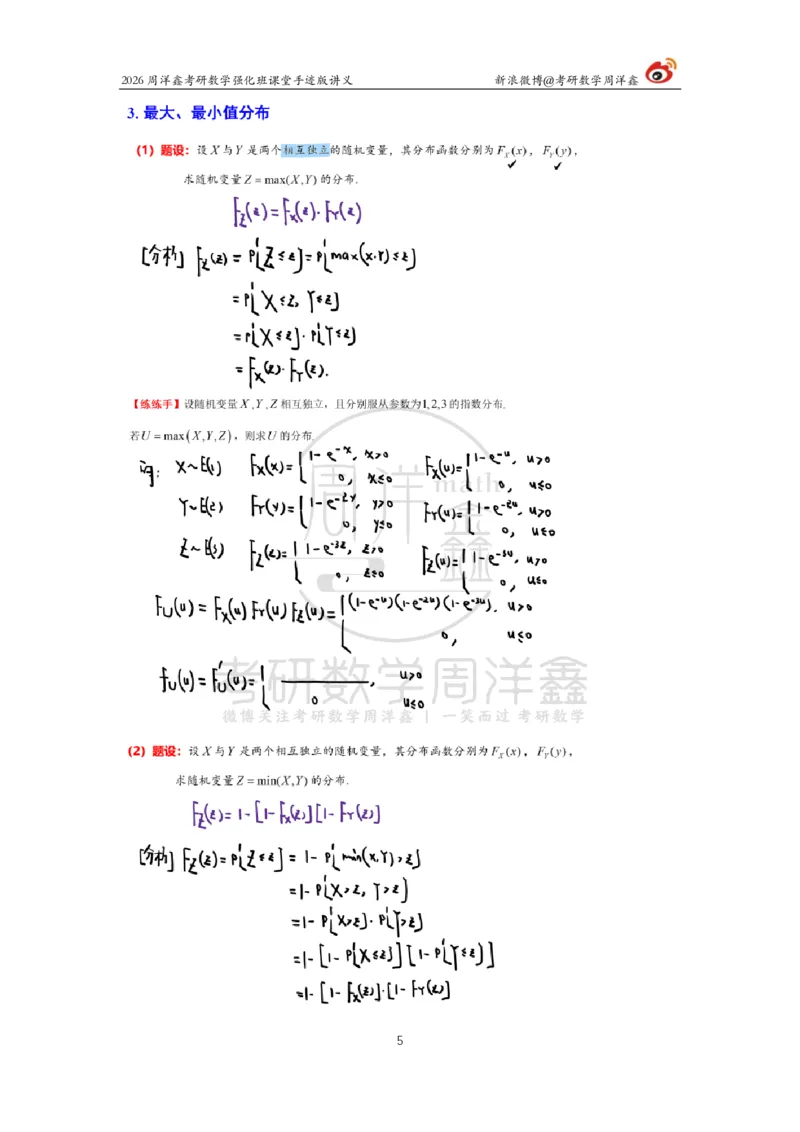 2026 周洋鑫考研数学强化班课堂手迹版讲义 新浪微博@考研数学周洋鑫
3. 最大、最小值分布
(1) 题设：设X与Y是两个相互独立的随机变量，其分布函数分别为F_X(x)，F_Y(y)，
求随机变量Z=max(X,Y)的分布.
F_Z(z)=F_X(z)·F_Y(z)
[分析] F_Z(z)=P{Z≤z}=P{max(X,Y)≤z}
=P{X≤z, Y≤z}
=P{X≤z}·P{Y≤z}
=F_X(z)·F_Y(z).
【练练手】设随机变量X,Y,Z相互独立，且分别服从参数为1,2,3的指数分布.
若U=max(X,Y,Z)，则求U的分布.
math
周洋鑫
X~E(1) F_X(x)={1-e^{-x}, x>0 F_X(u)={1-e^{-u}, u>0
0, x≤0 0, u≤0
Y~E(2) F_Y(y)={1-e^{-2y}, y>0 F_Y(u)={1-e^{-2u}, u>0
0, y≤0 0, u≤0
Z~E(3) F_Z(z)={1-e^{-3z}, z>0 F_Z(u)={1-e^{-3u}, u>0
0, z≤0 0, u≤0
F_U(u)=F_X(u)F_Y(u)F_Z(u)={(1-e^{-u})(1-e^{-2u})(1-e^{-3u}), u>0
0, u≤0
f_U(u)=F_U'(u)={______, u>0
0 u≤0
考研数学周洋鑫
微博关注考研数学周洋鑫 | 一笑而过 考研数学
(2) 题设：设X与Y是两个相互独立的随机变量，其分布函数分别为F_X(x)，F_Y(y)，
求随机变量Z=min(X,Y)的分布.
F_Z(z)=1-[1-F_X(z)][1-F_Y(z)]
[分析] F_Z(z)=P{Z≤z}=1-P{min(X,Y)>z}
=1-P{X>z, Y>z}
=1-P{X>z}·P{Y>z}
=1-[1-P{X≤z}][1-P{Y≤z}]
=1-[1-F_X(z)]·[1-F_Y(z)]
5